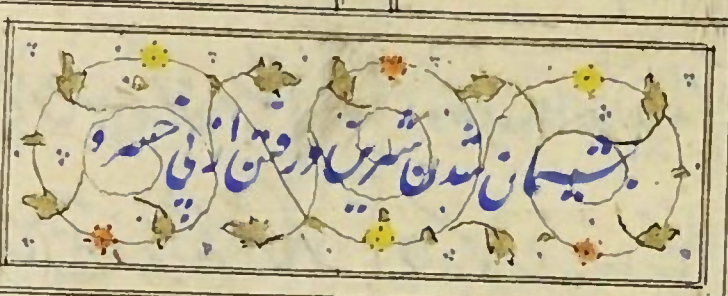 پشیمان شدن شیرین و رفتن از پی خسرو